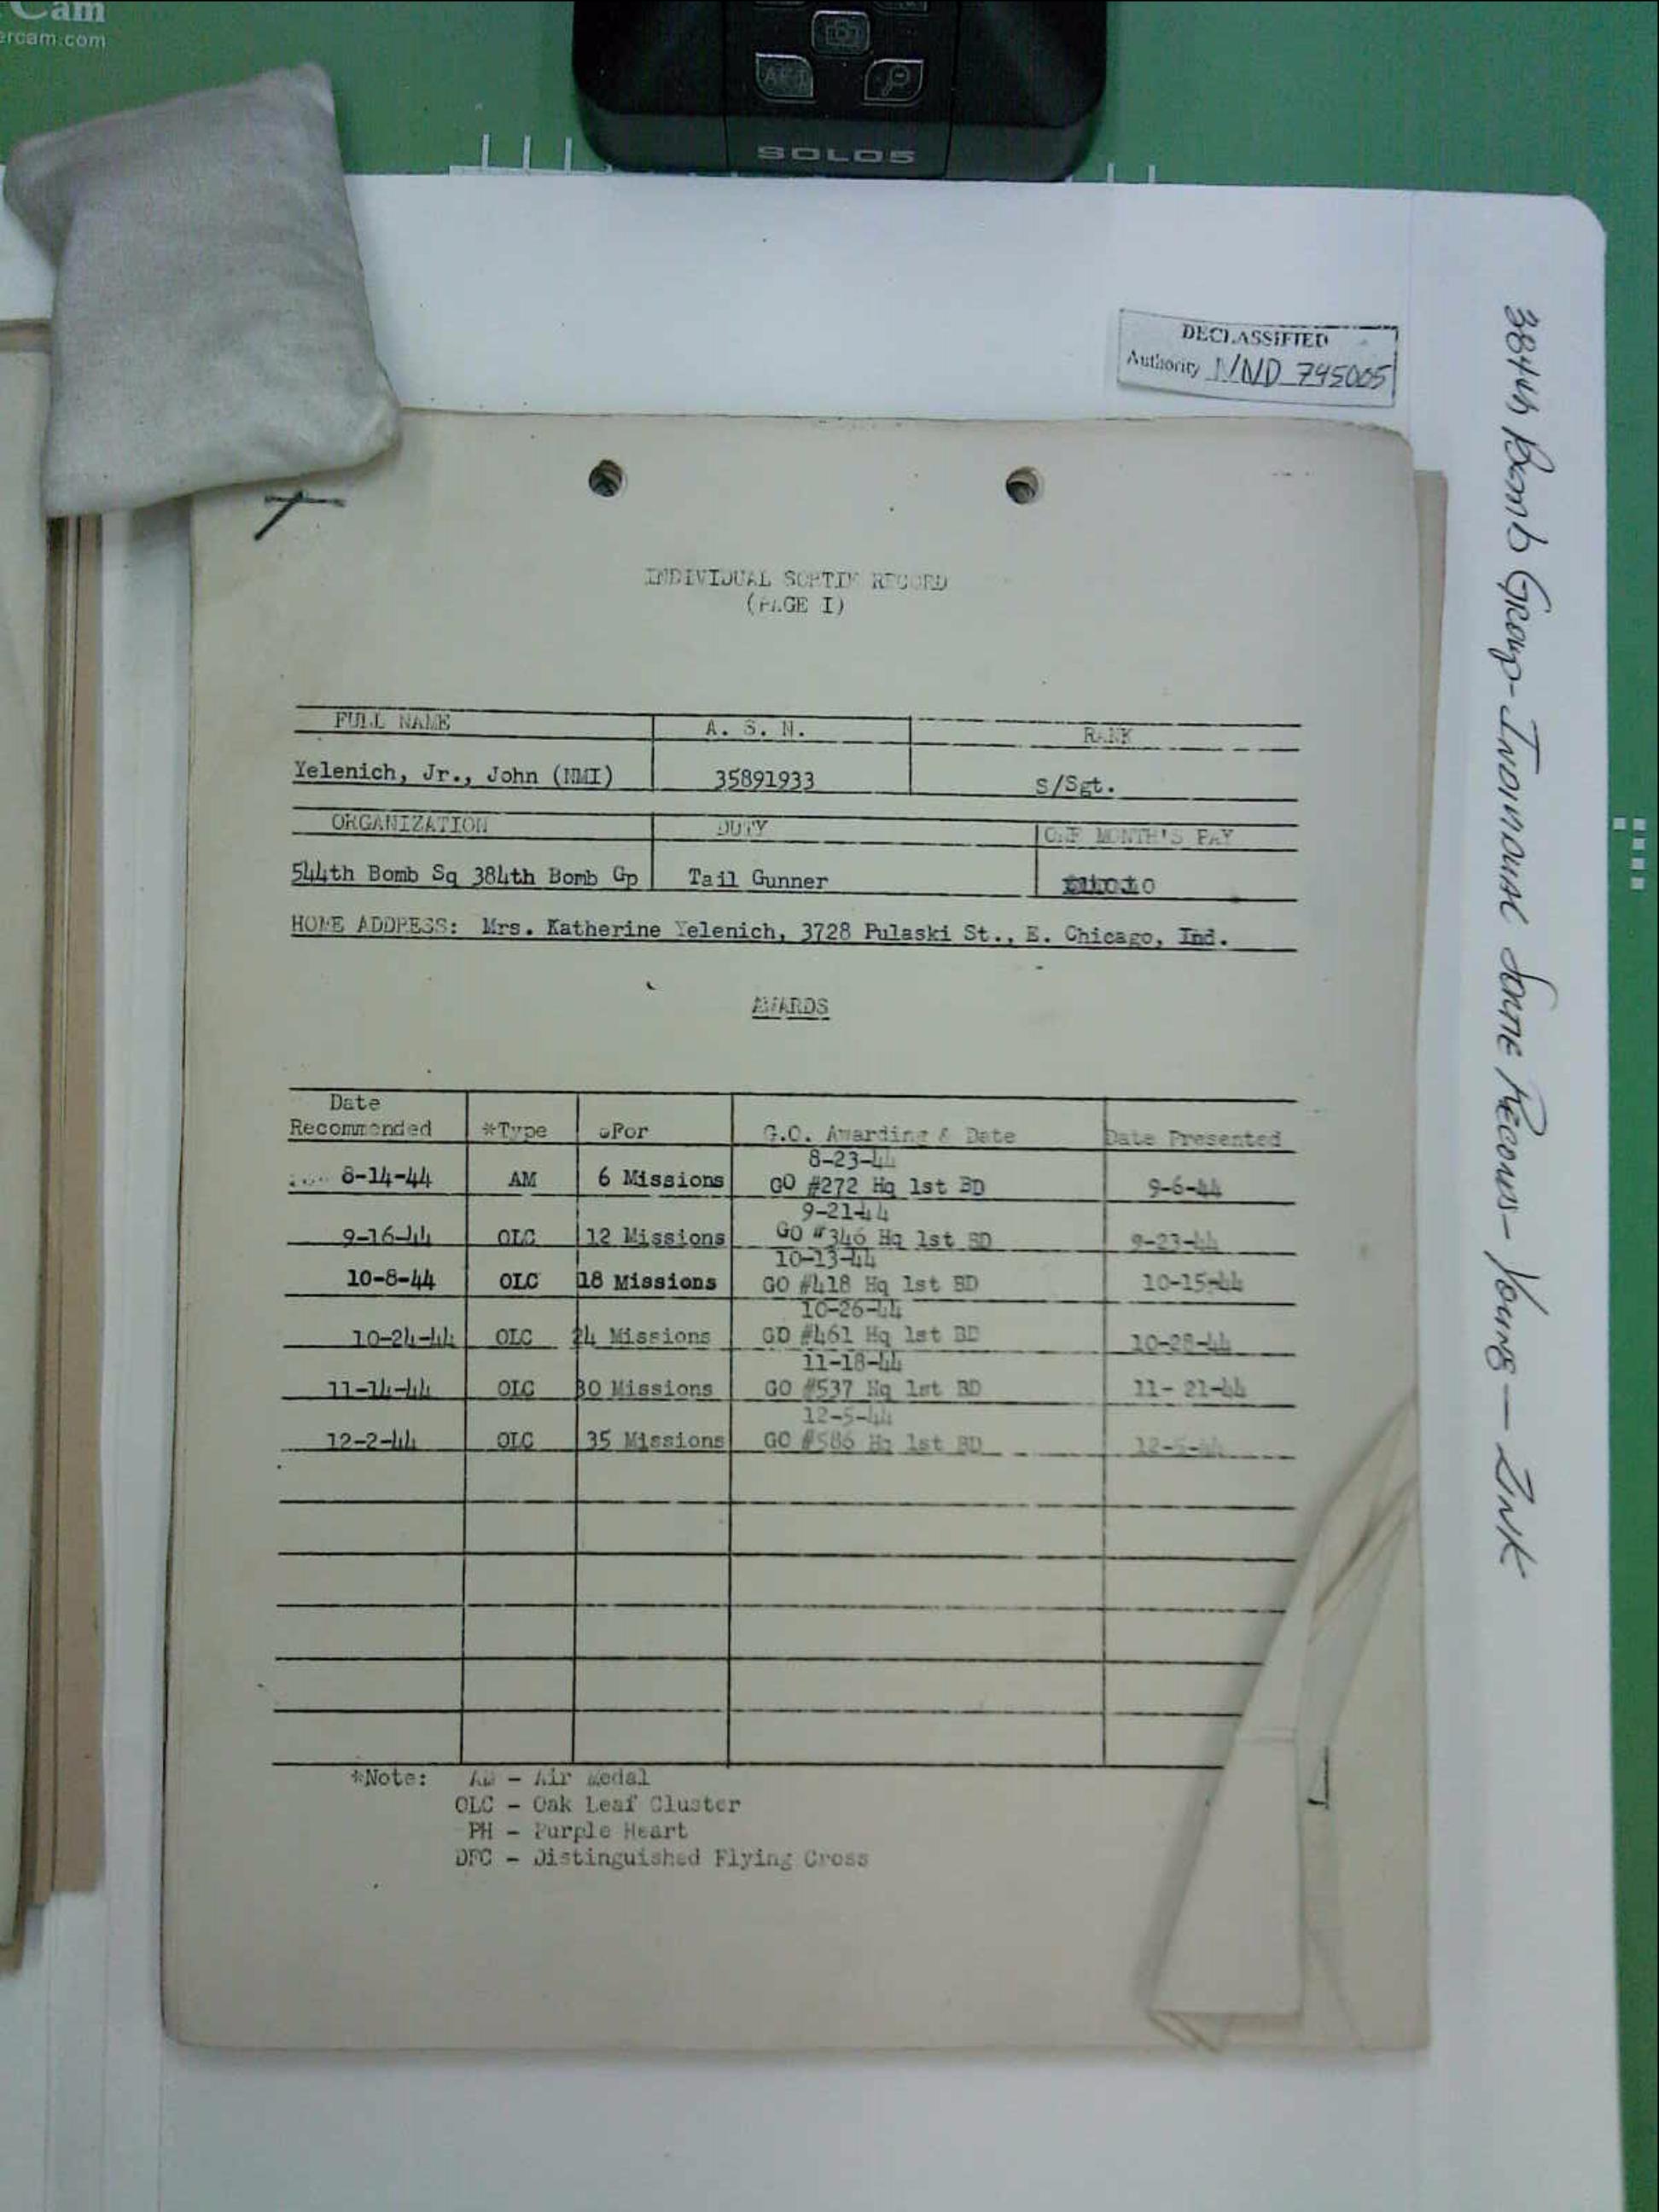 Cam
ercam.com
SOLO5
DECLASSIFIED
Authority NND 745005
384th Bomb Group - Individual Sortie Records - Young - Zink
INDIVIDUAL SORTIE RECORD
(PAGE I)
FULL NAME A. S. N. RANK
Yelenich, Jr., John (NMI) 35891933 S/Sgt.
ORGANIZATION DUTY ONE MONTH'S PAY
544th Bomb Sq 384th Bomb Gp Tail Gunner
HOME ADDRESS: Mrs. Katherine Yelenich, 3728 Pulaski St., E. Chicago, Ind.
AWARDS
Date
Recommended *Type For G.O. Awarding & Date Date Presented
8-23-44
8-14-44 AM 6 Missions GO #272 Hq 1st BD 9-6-44
9-21-44
9-16-44 OLC 12 Missions GO #346 Hq 1st BD 9-23-44
10-13-44
10-8-44 OLC 18 Missions GO #418 Hq 1st BD 10-15-44
10-26-44
10-24-44 OLC 24 Missions GO #461 Hq 1st BD 10-28-44
11-18-44
11-14-44 OLC 30 Missions GO #537 Hq 1st BD 11- 21-44
12-5-44
12-2-44 OLC 35 Missions GO #586 Hq 1st BD 12-6-44
*Note: AM - Air Medal
OLC - Oak Leaf Cluster
PH - Purple Heart
DFC - Distinguished Flying Cross